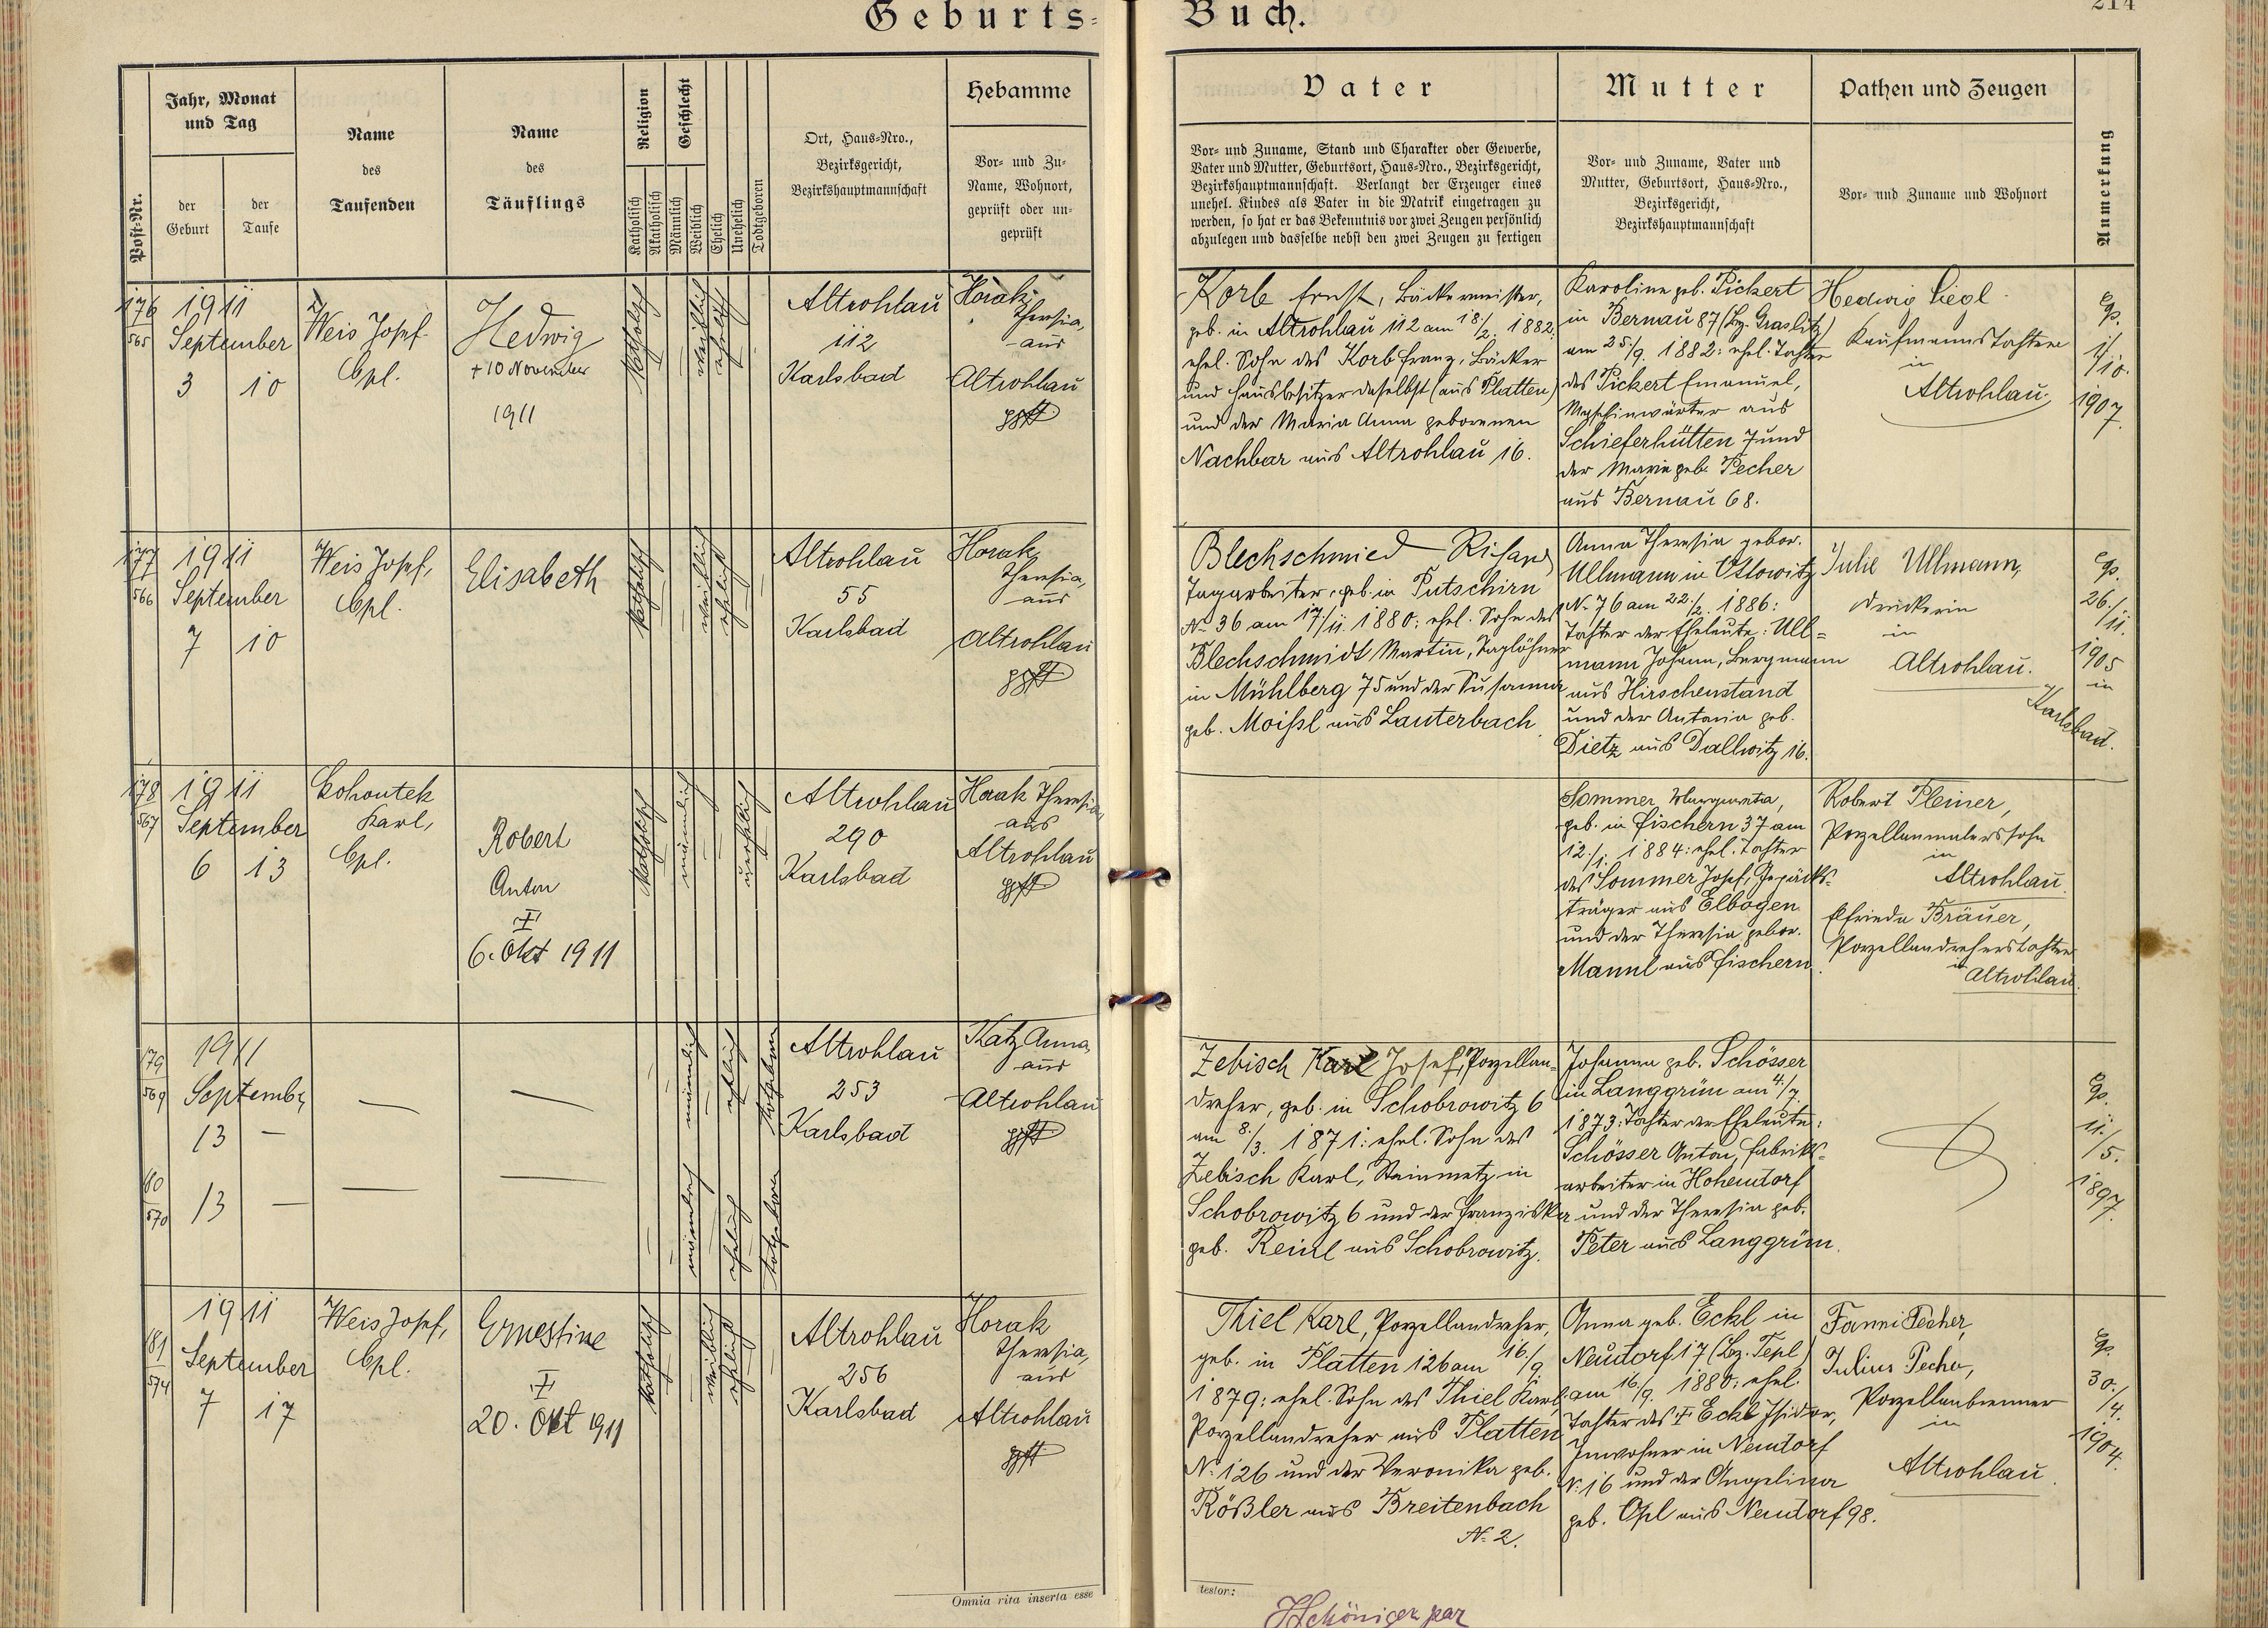 Geburts-Buch.
214
Post-Nr.
Jahr, Monat
und Tag
der
Geburt
der
Taufe
Name
des
Taufenden
Name
des
Täuflings
Religion
Katholisch
Akatholisch
Geschlecht
Männlich
Weiblich
Ehelich
Unehelich
Todtgeboren
Ort, Haus-Nro.,
Bezirksgericht,
Bezirkshauptmannschaft
Hebamme
Vor- und Zu-
Name, Wohnort,
geprüft oder un-
geprüft
Vater
Vor- und Zuname, Stand und Charakter oder Gewerbe,
Vater und Mutter, Geburtsort, Haus-Nro., Bezirksgericht,
Bezirkshauptmannschaft. Verlangt der Erzeuger eines
unehel. Kindes als Vater in die Matrik eingetragen zu
werden, so hat er das Bekenntnis vor zwei Zeugen persönlich
abzulegen und dasselbe nebst den zwei Zeugen zu fertigen
Mutter
Vor- und Zuname, Vater und
Mutter, Geburtsort, Haus-Nro.,
Bezirksgericht,
Bezirkshauptmannschaft
Pathen und Zeugen
Vor- und Zuname und Wohnort
Anmerkung
176
565
1911
September
3 10
Weis Josef
Cpl.
Hedwig
+ 10 November
1911
katholisch
weiblich
ehelich
Altrohlau
112
Karlsbad
Horak
Theresia,
aus
Altrohlau
gpft
Korb Ernst, Bäckermeister,
geb. in Altrohlau 112 am 18./2. 1882:
ehel. Sohn des Korb Franz, Bäcker
und Hausbesitzer daselbst (aus Platten)
und der Maria Anna geborenen
Nachbar aus Altrohlau 16.
Karoline geb. Pickert
in Bernau 87 (Bz. Graslitz)
am 25./9. 1882: ehel. Tochter
des Pickert Emanuel,
Maschinwärter aus
Schieferhütten 7 und
der Marie geb. Pecher
aus Bernau 68.
Hedwig Siegl
Kaufmannstochter
in
Altrohlau.
Cp.
1./10.
1907.
177
566
1911
September
7 10
Weis Josef,
Cpl.
Elisabeth
katholisch
weiblich
ehelich
Altrohlau
55
Karlsbad
Horak
Theresia,
aus
Altrohlau
gpft
Blechschmied Richard
Tagarbeiter, geb. in Putschirn
No 36 am 17./11. 1880: ehel. Sohn des
Blechschmidt Martin, Taglöhner
in Mühlberg 75 und der Susanna
geb. Moißl aus Lauterbach.
Anna Theresia gebor.
Ullmann in Ottowitz
No 76 am 22./2. 1886:
Tochter der Eheleute: Ull=
mann Johann, Bergmann
aus Hirschenstand
und der Antonia geb.
Dietz aus Dallwitz 16.
Julie Ullmann,
Druckerin
in
Altrohlau.
Cp.
26./11.
1905
in
Karlsbad.
178
567
1911
September
6 13
Kohoutek
Karl,
Cpl.
Robert
Anton
+
6. Okt 1911
katholisch
männlich
unehelich
Altrohlau
290
Karlsbad
Horak Theresia,
aus
Altrohlau
gpft
Sommer Margareta,
geb. in Fischern 37 am
12./1. 1884: ehel. Tochter
des Sommer Josef, Gepäcks=
träger aus Elbogen
und der Theresia gebor.
Mannl aus Fischern.
Robert Pleiner,
Porzellanmalerssohn
in
Altrohlau.
Elfrieda Bräuer,
Porzellandreherstochter
in Altrohlau.
179
569
1911
September
13 —
männlich
ehelich
totgeboren
Altrohlau
253
Karlsbad
Katz Anna,
aus
Altrohlau
gpft
180
570
13 —
männlich
ehelich
totgeboren
Zebisch Karl Josef, Porzellan=
dreher, geb. in Schobrowitz 6
am 8./3. 1871: ehel. Sohn des
Zebisch Karl, Steinmetz in
Schobrowitz 6 und der Franziska
geb. Reinl aus Schobrowitz.
Johanna geb. Schösser
in Langgrün am 4./7.
1873: Tochter der Eheleute:
Schösser Anton, Fabriks=
arbeiter in Hohendorf
und der Theresia geb.
Peter aus Langgrün.
Cp.
11./5.
1897.
181
574
1911
September
7 17
Weis Josef,
Cpl.
Ernestine
+
20. Okt 1911
katholisch
weiblich
ehelich
Altrohlau
256
Karlsbad
Horak
Theresia,
aus
Altrohlau
gpft
Thiel Karl, Porzellandreher,
geb. in Platten 126 am 16./9.
1879: ehel. Sohn des Thiel Karl
Porzellandreher aus Platten
No 126 und der Veronika geb.
Rößler aus Breitenbach
No 2.
Anna geb. Eckl in
Neudorf 17 (Bz. Tepl)
am 16./9. 1880: ehel.
Tochter des + Eckl Isidor,
Inwohner in Neudorf
No 16 und der Angelina
geb. Opl aus Neudorf 98.
Fanni Pecher,
Julius Pecher,
Porzellanbrenner
in
Altrohlau.
Cp.
30./4.
1904.
Omnia rita inserta esse
testor: